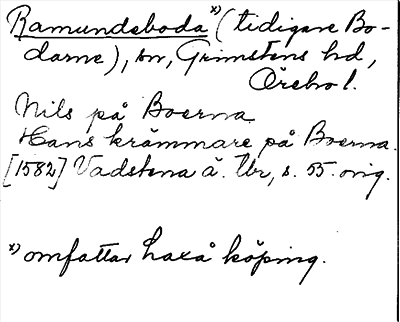 Ramundeboda x) (tidigare Bo-
darne), sn, Grimstens hd,
Örebro l.
Nils på Boerna
Hans krämmare på Boerna.
[1582] Vadstena ä. Tbr, s. 55. orig.
x) omfattar Laxå köping.